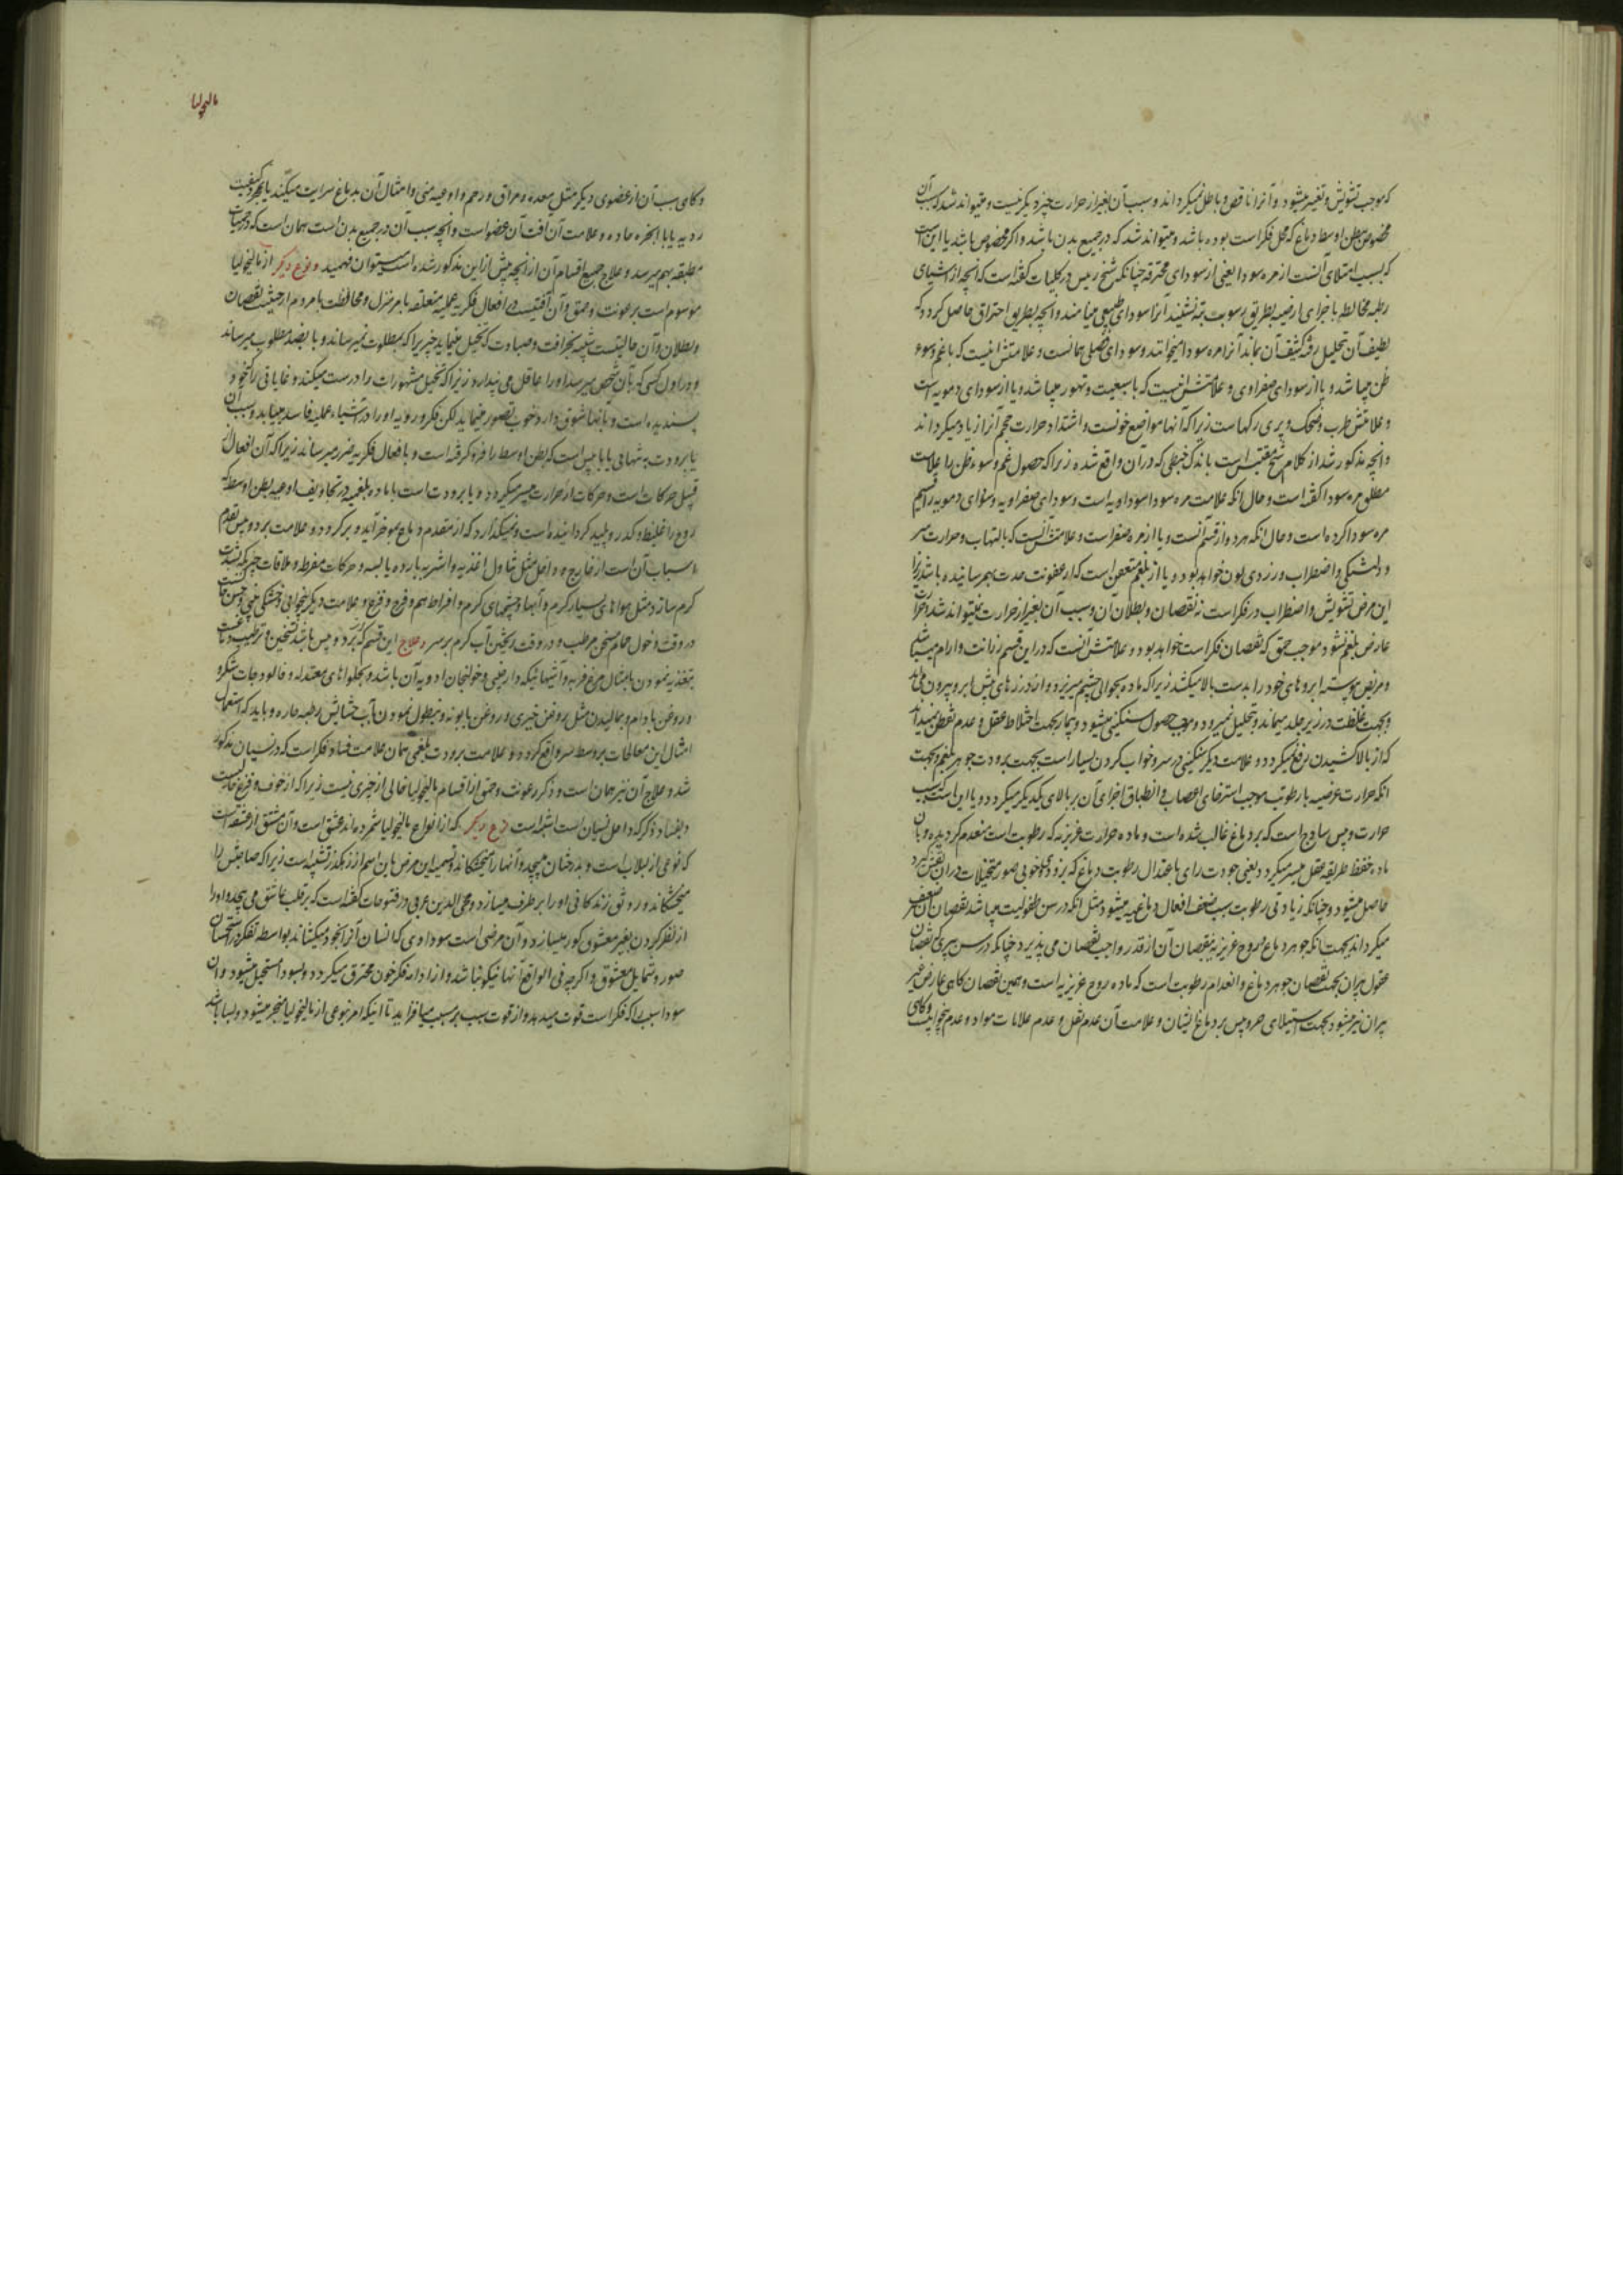 که موجب تشویش و تغیر میشود و آنرا ناقص و باطل نمیکرداند و سبب آن بغیر از حرارت چیز دیکر نیست و میتواند شد که سبب آن
مخصوص ببطن اوسط دماغ که محل فکر است بوده باشد و میتواند شد که در جمیع بدن باشد و اکر مخصوص باشد یا این است
که بسبب امتلای آنست از مره سودا یعنی از سودای محترقه چنانکه شیخ رییس در کلیات کفته است که آنچه از اشیای
رطبه مخالطه باجزای ارضیه بطریق رسوبت ته نشیند آنرا سودای طبیعی مینامند و آنچه بطریق احتراق حاصل کردد که
لطیف آن تحلیل رفته کثیف آن بماند آنرا مره سودا میخوانند و سودای فضلی همانست و علامتش اینست که با غم و سوء
ظن میباشد و یا از سودای صفراوی و علامتش اینست که با سبعیت و تهور میباشد و یا از سودای دمویه است
و علامتش طرب و ضحک و پری رکهاست زیرا که آنها مواضع خونست و اشتداد حرارت حجم آنرا زیاد میکرداند
و آنچه مذکور شد از کلام شیخ مقتبس است باندک خبطی که در آن واقع شده زیرا که حصول غم و سوء ظن را علامت
مطلق مره سودا کفته است و حال آنکه علامت مره سودا سوداویه است و سودای صفراویه و سودای دمویه را قسیم
مره سودا کرده است و حال آنکه هر دو از قسم آنست و یا از مره صفرا است و علامتش آنست که با التهاب و حرارت سر
و دلتنکی و اضطراب و زردی لون خواهد بود و یا از بلغم متعفن است که از عفونت حدت بهم رسانیده باشد زیرا
این مرض تشویش و اضطراب در فکر است نه نقصان و بطلان آن و سبب آن بغیر از حرارت نمیتواند شد
عارض بلغم نشود موجب حمق که نقصان فکر است خواهد بود و علامتش آنست که در این قسم رزانت و آرام میباشد
و مریض پیوسته ابروهای خود را بدست بالا میکشد زیرا که ماده بحوالی چشم میریزد و از درزهای پیش ابرو بیرون می آید
و بجهت غلظت در زیر جلد میماند و بتحلیل نمیرود و موجب حصول سنکینی میشود و بیمار بجهت اختلاط عقل و عدم تفطن میپندارد
که از بالا کشیدن رفع میکردد و علامت دیکر سنکینی در سر و خواب کردن بسیار است بجهت برودت جوهر بلغم و بجهت
آنکه حرارت عرضیه با رطوبت موجب استرخای اعصاب و انطباق اجزای آن بر بالای یکدیکر میکردد و یا این است که بسبب
حرارت و یبس ساذج است که بر دماغ غالب شده است و ماده حرارت غریزیه که رطوبت است منعدم کردیده و بآن
ماده حفظ طریقه عقل میسر میکردد یعنی جودت رای باعتدال رطوبت دماغ که بزودی و خوبی صور متخیلات در آن نقش کیرد
حاصل میشود و چنانکه زیادتی رطوبت سبب ضعف افعال دماغیه میشود مثل آنکه در سن طفولیت میباشد نقصان آن ضعیف
میکرداند بجهت آنکه جوهر دماغ و روح غریزیه بنقصان آن از قدر واجب نقصان می پذیرد چنانکه در سن پیری که نقصان
عقول پیران بجهت نقصان جوهر دماغ و انعدام رطوبت است که ماده روح غریزیه است و همین نقصان کاهی عارض غیر
پیران نیز میشود بجهت استیلای حر و یبس بر دماغ ایشان و علامت آن عدم ثقل و عدم علامات مواد و عدم بیخوابیست و کاهی
مالیخولیا
و کاهی سبب آن از عضوی دیکر مثل معده و مراق و رحم و اوعیه منی و امثال آن بدماغ سرایت میکند یا بمجرد کیفیت
ردیه یا با ابخره حاده و علامت آن آفت آن عضو است و آنچه سبب آن در جمیع بدن است همان است که در حمیات
مطبقه بهم میرسد و علاج جمیع اقسام آن از آنچه پیش از این مذکور شده است میتوان فهمید و نوع دیکر از مالیخولیا
موسوم است برعونت و حمق و آن آفتیست در افعال فکریه عملیه متعلقه بامر منزل و محافظت با مردم از حیثیت نقصان
و بطلان و آن حالتیست شبیه بخرافت و صباوت که تخیل مینماید چیزیرا که بمطلوب نمیرساند و یا بضد مطلوب میرساند
و در اول کسی که بآن شخص میرسد او را عاقل می پندارد زیرا که تخیل مشهورات را درست میکند و غایاتی را که خوب و
پسندیده است و بآنها شوق دارد خوب تصور مینماید لکن فکر و رویه او را در اشیاء عملیه فاسد مییابد و سبب آن
یا برودت به تنهایی یا با یبس است که بطن اوسط را فرو کرفته است و بافعال فکریه ضرر میرساند زیرا که آن افعال از
قبیل حرکات است و حرکات از حرارت میسر میکردد و یا برودت است با ماده بلغمیه در تجاویف اوعیه بطن اوسط که
روح را غلیظ و کدر و پلید کردانیده است و نمیکذارد که از مقدم دماغ بموخر آید و برکردد و علامت برد و یبس تقدم
اسباب آن است از خارج و داخل مثل تناول اغذیه و اشربه بارده یابسه و حرکات مفرطه و ملاقات چیزیکه بشدت
کرم سازد مثل هواهای بسیار کرم و آبها و چشمهای کرم و افراط هم و فرح و فزع و علامت دیکر بیخوابی و خشکی بینی
در وقت دخول حمام مسخن مرطب و در وقت ریختن آب کرم بر سر و علاج این قسم که از برد و یبس باشد تسخین و ترطیب دماغست
بتغذیه نمودن بامثال مرغ فربه و آشهائیکه دارچینی و خولنجان ادویه آن باشد و بحلواهای معتدله و فالودجات شکر و
و روغن بادام و بمالیدن مثل روغن خیری و روغن بابونه و بنطول نمودن بآب حشایش رطبه حاره و باید که استعمال
امثال این معالجات بر وسط سر واقع کردد و علامت برودت بلغمی همان علامت فساد فکر است که در نسیان مذکور
شد و علاج آن نیز همان است و ذکر رعونت و حمق از اقسام مالیخولیا خالی از چیزی نیست زیرا که از خوف و فزع خالیست
و بفساد ذکر که داخل نسیان است اشبه است نوع دیکر که از انواع مالیخولیا شمرده اند عشق است و آن مشتق از عشقه است
که نوعی از لبلاب است و بدرختان میپیچد و آنها را میخشکاند و تسمیه این مرض باین اسم از رهکذر تشبیه است زیرا که صاحبش را
میخشکاند و رونق زندکانی او را برطرف میسازد و محی الدین عربی در فتوحات کفته است که بر قلب عاشق می پیچد و او را
از نظر کردن بغیر معشوق کور میسازد و آن مرضی است سوداوی که انسان آنرا بخود میکشاند بواسطه تفکر در استحسان
صور و شمایل معشوق و اکرچه فی الواقع آنها نیکو نباشد و از ادامه فکر خون محترق میکردد و بسودا مستحیل میشود و آن
سودا سبب را که فکر است قوت میدهد و از قوت سبب بر مسبب میافزاید تا اینکه امر بنوعی از مالیخولیا منجر میشود و بسا باشد